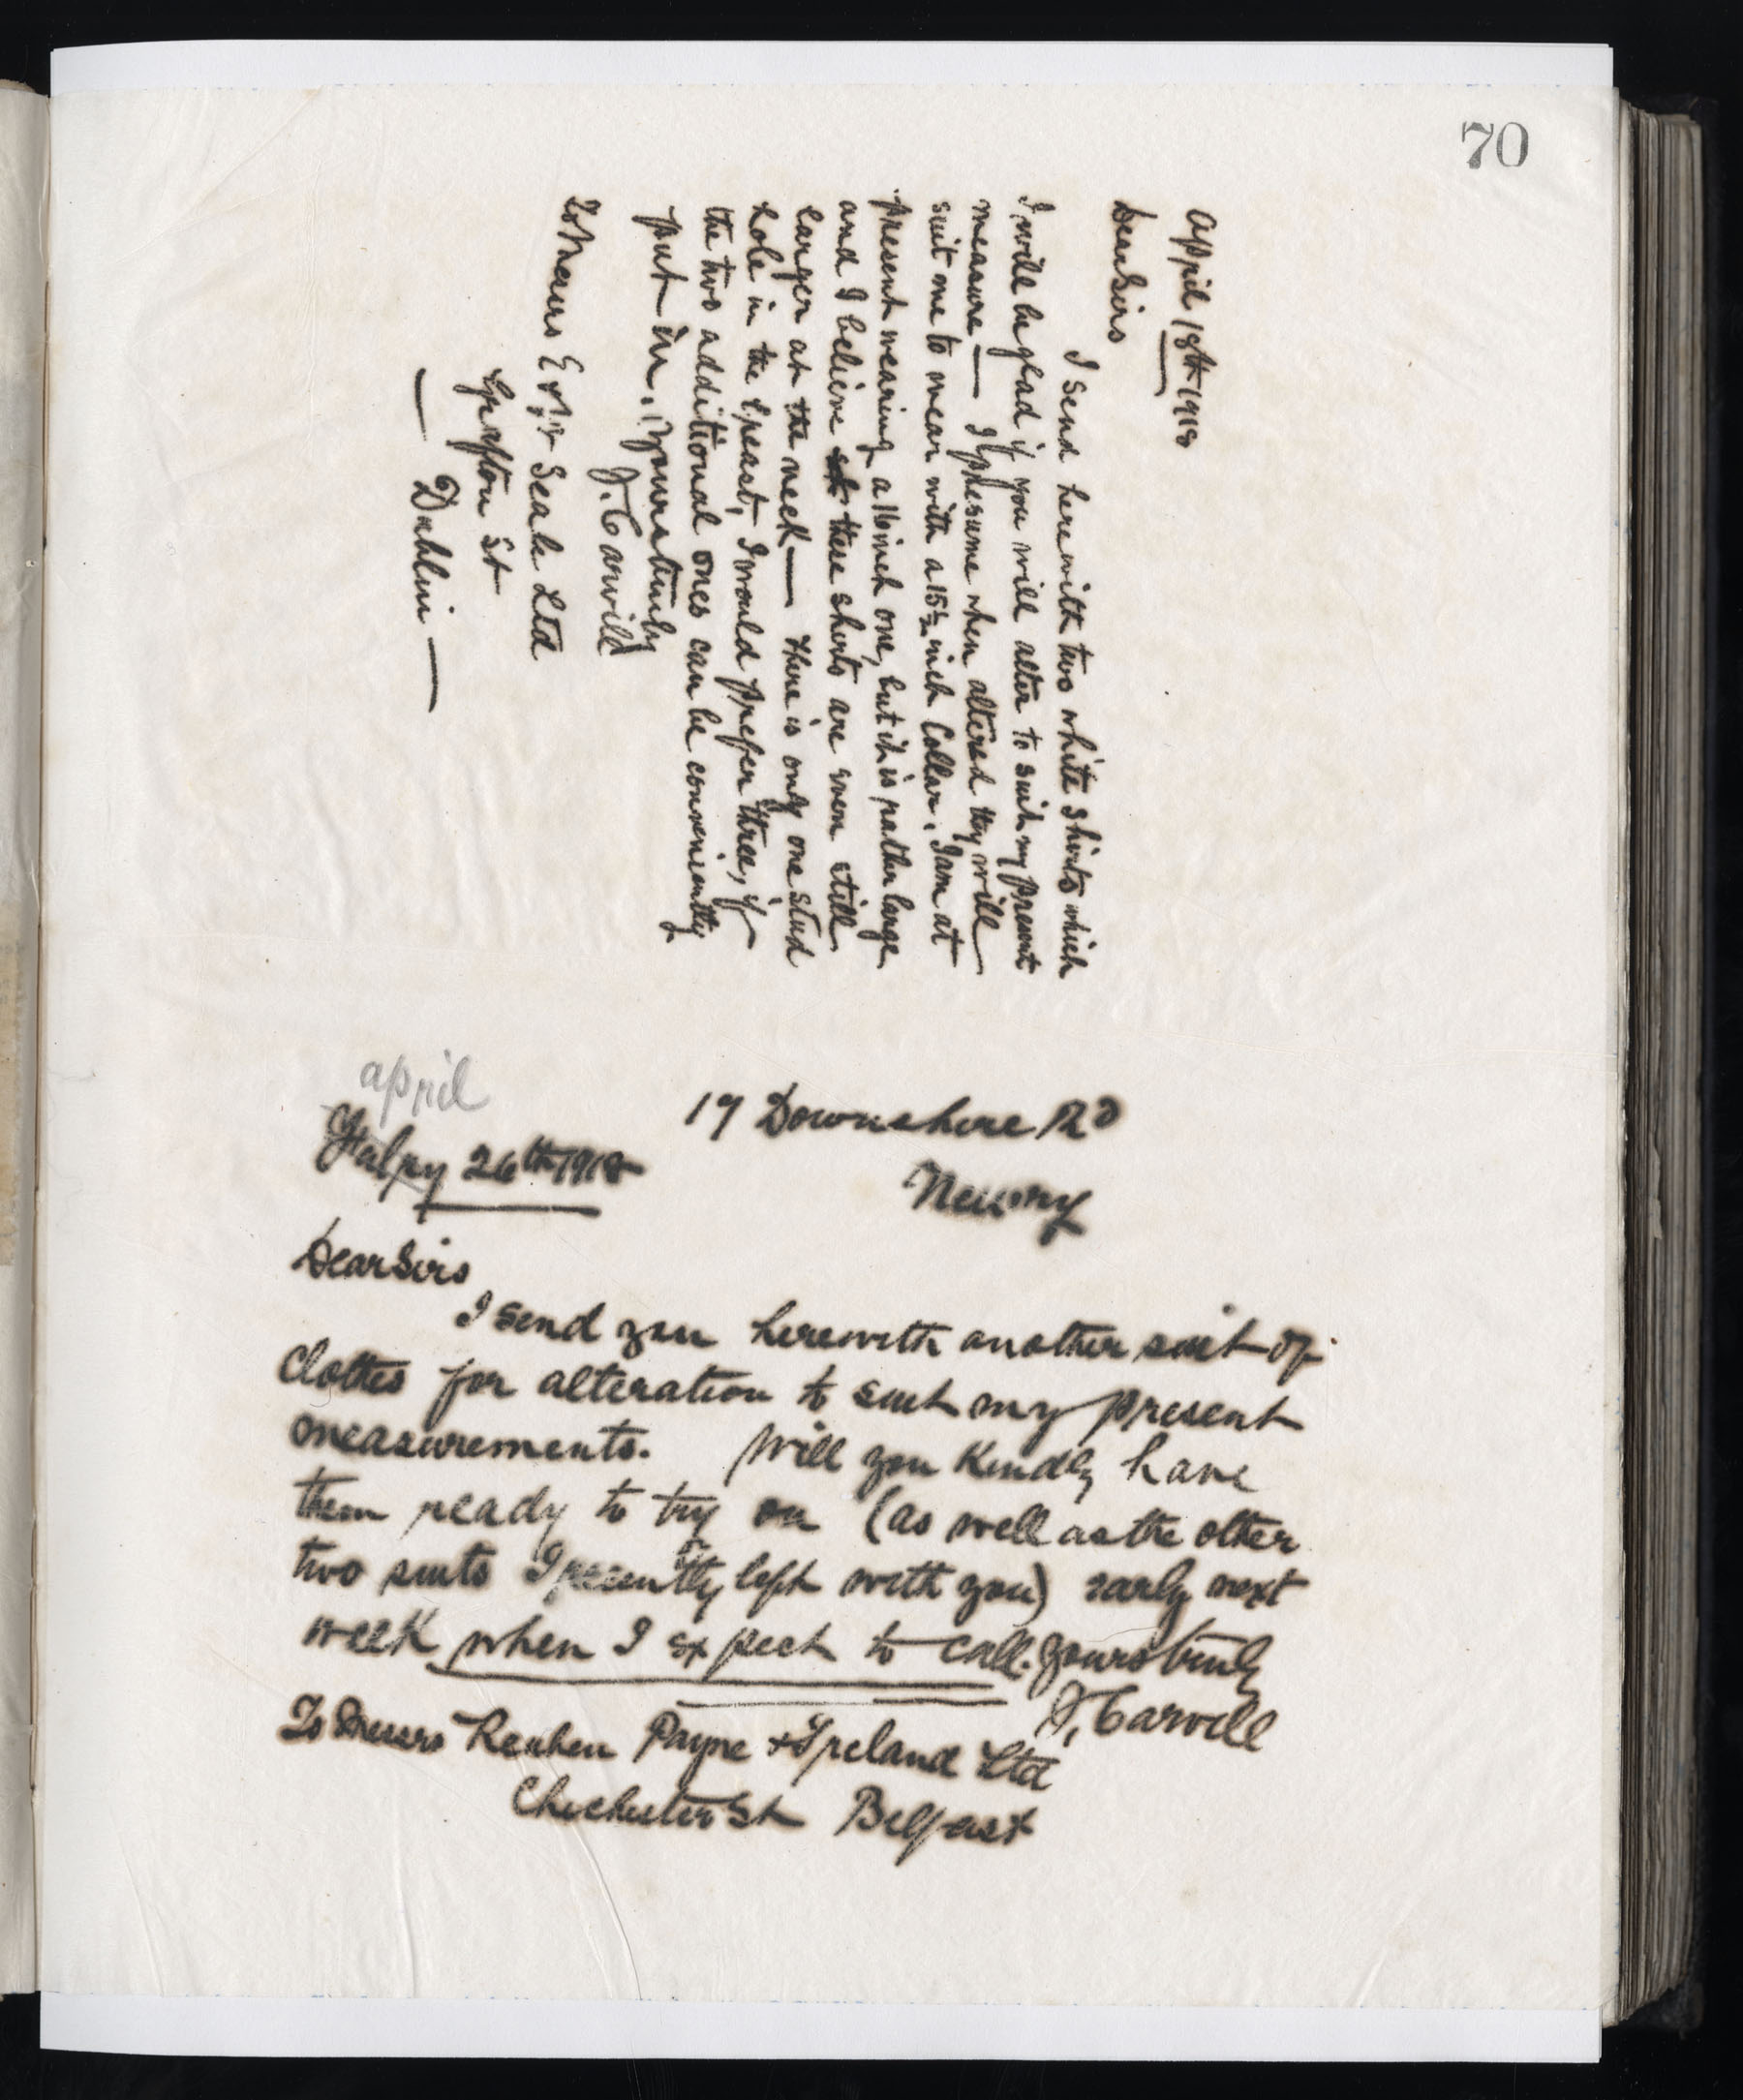 70
April 18th 1918
Dear Sirs
I send herewith two white shirts which
I will be glad if you will alter to suit my present
measure — I presume when altered they will
suit me to wear with a 15½ inch Collar. I am at
present wearing a 16 inch one, but it is rather large
and I believe these shirts are even still
larger at the neck — There is only one stud
hole in the breast, I would prefer three, if
the two additional ones can be conveniently
put in. Yours truly
J. Carvill
To Messrs E & W Seale Ltd
Grafton St
— Dublin —
april
19 Downshire Rd
26th 1918
Newry
Dear Sirs
I send you herewith another suit of
Clothes for alteration to suit my present
measurements. Will you Kindly have
them ready to try on (as well as the other
two suits I recently left with you) early next
week when I expect to call. Yours truly
J. Carvill
To Messrs Reuben Payne & Ireland Ltd
Chichester St Belfast